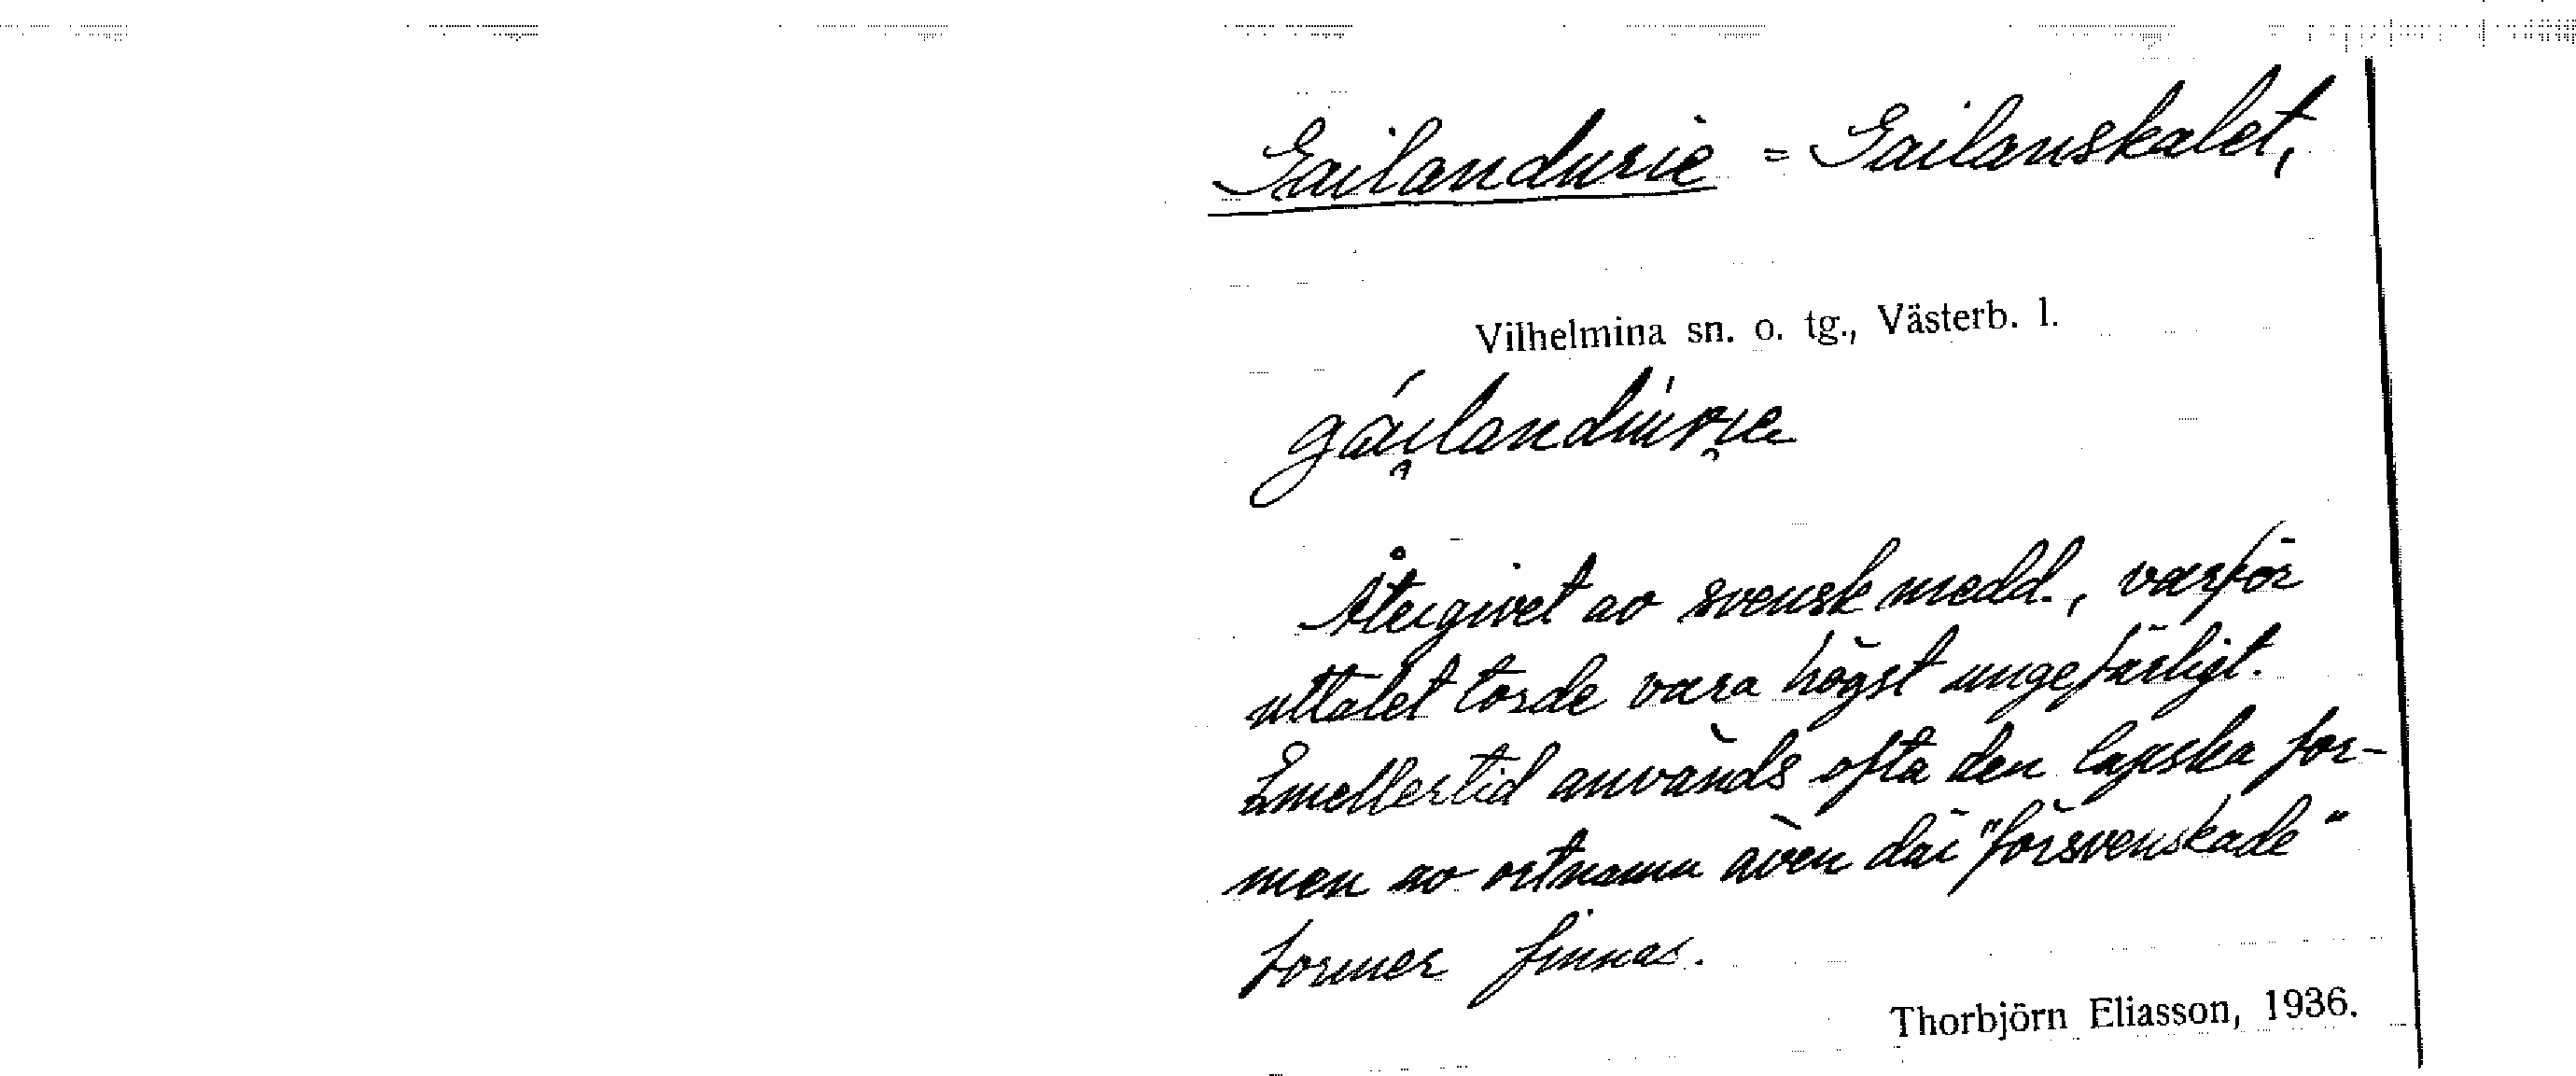 Gailandurie = Gailanskalet,
Vilhelmina sn. o. tg., Västerb. l.
gái̯landúri̯e
Återgivet av svensk medd., varför
uttalet torde vara högst ungefärligt.
Emellertid används ofta den lapska for-
men av ortnamn även där "försvenskade"
former finnas.
Thorbjörn Eliasson, 1936.